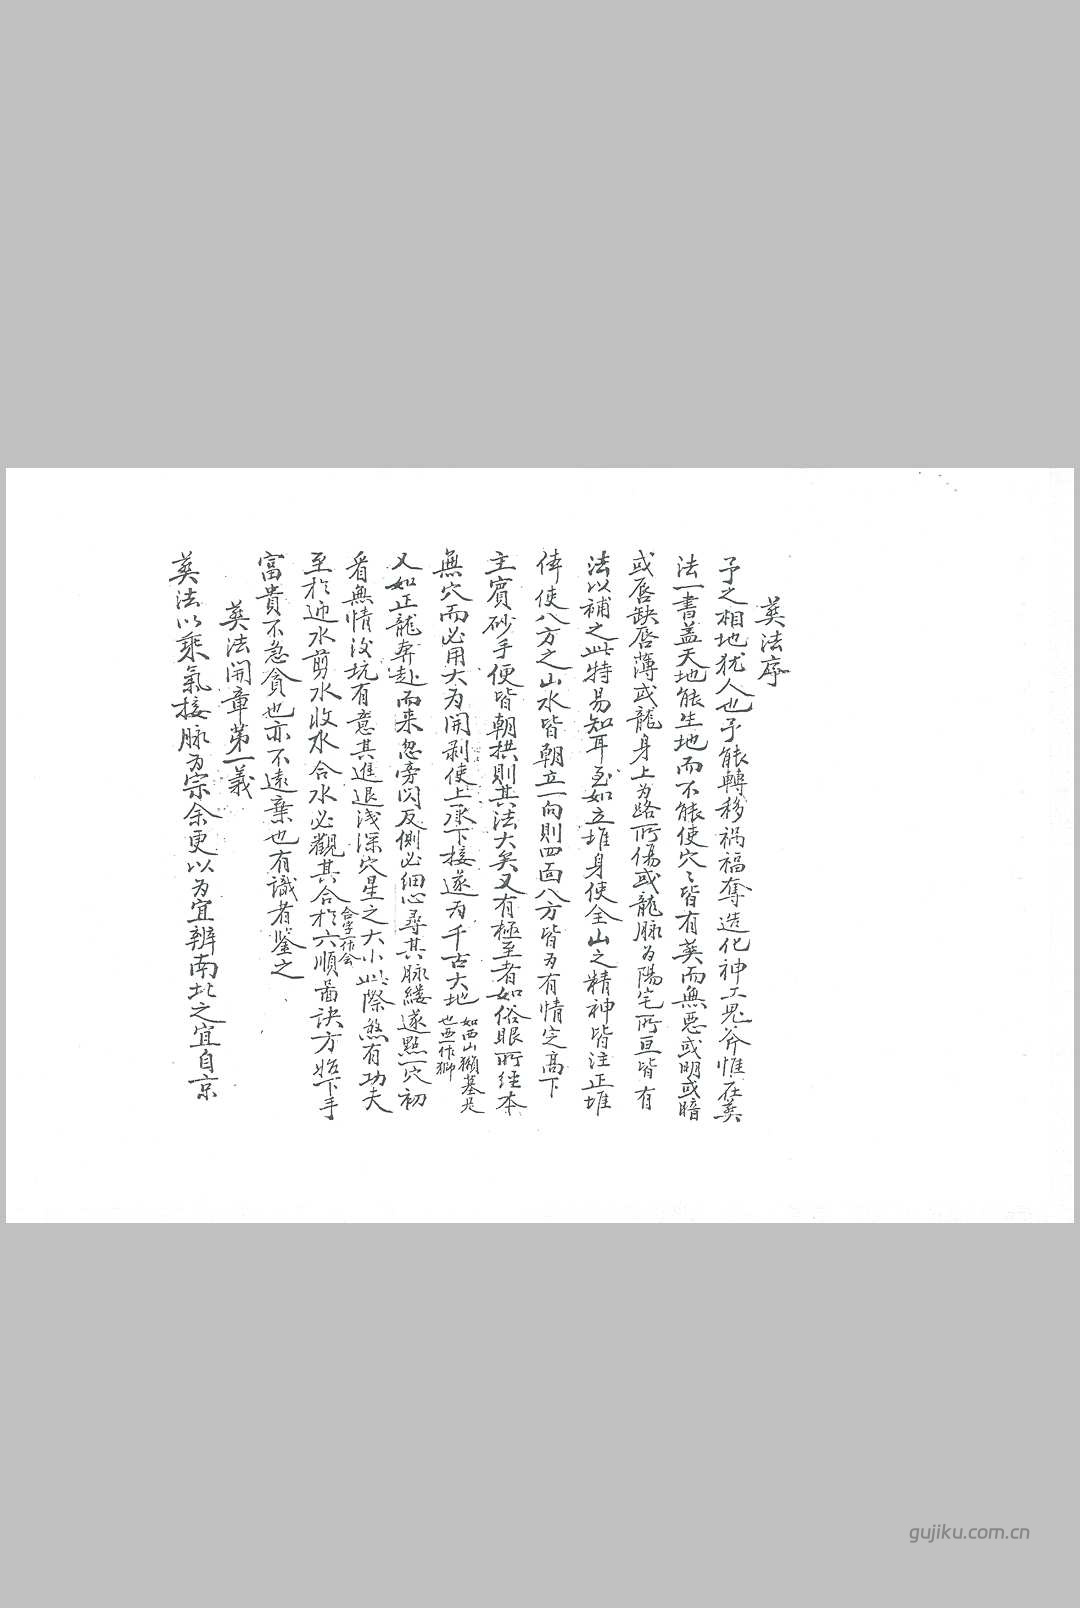 葬法序
予之相地犹人也予能轉移禍福奪造化神工鬼斧惟在葬
法一書蓋天地能生地而不能使穴〻皆有葬而無惡或明或暗
或唇缺唇薄或龍身上为路所傷或龍脉为陽宅所亘皆有
法以補之此特易知耳至如立堆身使全山之精神皆注正堆
倳使八方之山水皆朝立一向則四面八方皆为有情定高下
主賓砂手便皆朝拱則其法大矣又有極至者如俗眼所经本
無穴而必用大为開剥使上承下接遂为千古大地如西山獺墓是
也亜一作獅
又如正龍奔赴而来忽旁闪反側必细心尋其脉縷遂點一穴初
看無情没坑有意其進退浅深穴星之大小此際煞有功夫
至於迎水剪水收水合水必觀其合於合字一作会六順畐訣方始下手
富貴不急貪也亦不遠棄也有識者鉴之
葬法開章第一義
葬法以乘氣接脉为宗余更以为宜辨南北之宜自京
gujiku.com.cn